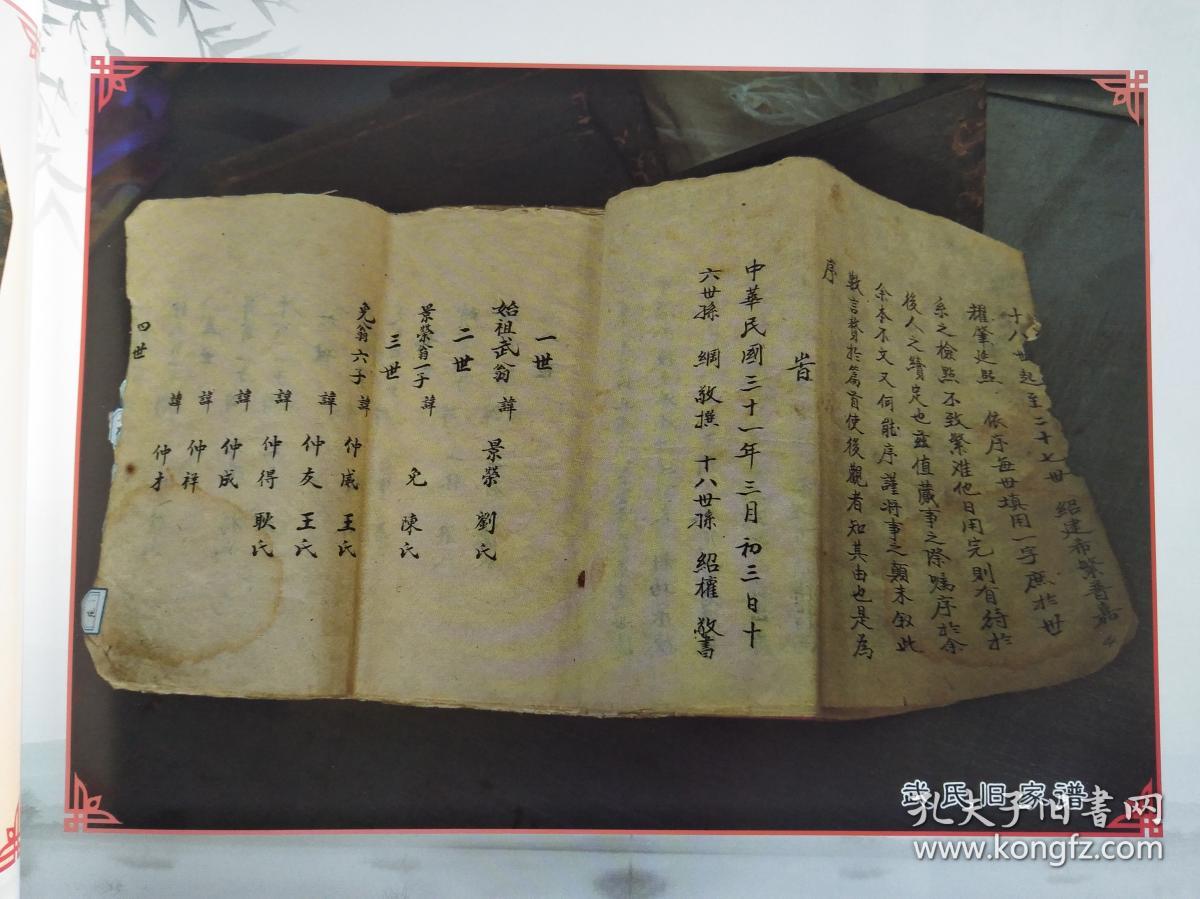 十八世起至二十七世 紹建希繁香嘉
耀肇延熙 依序每世填用一字庶於世
系之檢點不致繁难他日用完則有待於
後人之續定也兹值蕆事之際嘱序於余
余本不文又何能序謹將事之顛末叙此
数言贅於篇首使後觀者知其由也是為
序
旹
中華民國三十一年三月初三日十
六世孫 綱 敬撰 十八世孫 紹權 敬書
一世
始祖武翁 諱 景榮 劉氏
二世
景榮翁一子 諱 免 陳氏
三世
免翁六子 諱 仲威 王氏
諱 仲友 王氏
諱 仲得 耿氏
諱 仲成
諱 仲祥
諱 仲才
四世
一世
武氏旧家谱
孔夫子旧书网
www.kongfz.com